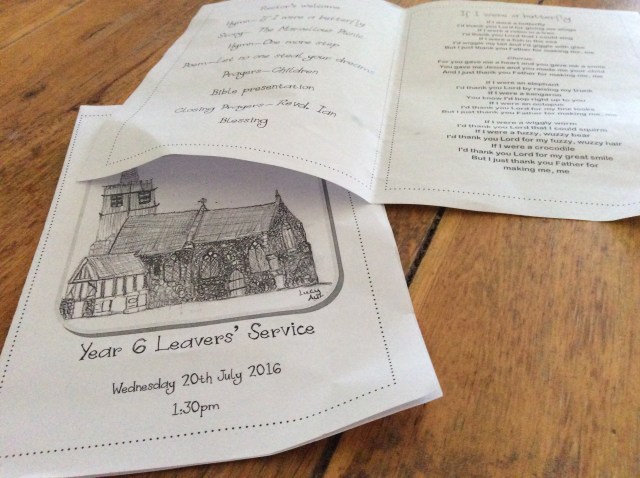 Rector's welcome
Hymn - If I were a butterfly
Song - The Marvellous Music
Hymn - One more step
Poem - Let no one steal your dreams
Prayers - Children
Bible presentation
Closing Prayers - Revd. Ian
Blessing
If I were a butterfly
If I were a butterfly
I'd thank you Lord for giving me wings
If I were a robin in a tree
I'd thank you Lord that I could sing
If I were a fish in the sea
I'd wiggle my tail and I'd giggle with glee
But I just thank you Father for making me, me
Chorus:
For you gave me a heart and you gave me a smile
You gave me Jesus and you made me your child
And I just thank you Father for making me, me
If I were an elephant
I'd thank you Lord by raising my trunk
If I were a kangaroo
You know I'd hop right up to you
If I were an octopus
I'd thank you Lord for my fine looks
But I just thank you Father for making me, me
If I were a wiggly worm
I'd thank you Lord that I could squirm
If I were a fuzzy, wuzzy bear
I'd thank you Lord for my fuzzy, wuzzy hair
If I were a crocodile
I'd thank you Lord for my great smile
But I just thank you Father for
making me, me
Lucy
Year 6 Leavers' Service
Wednesday 20th July 2016
1:30pm